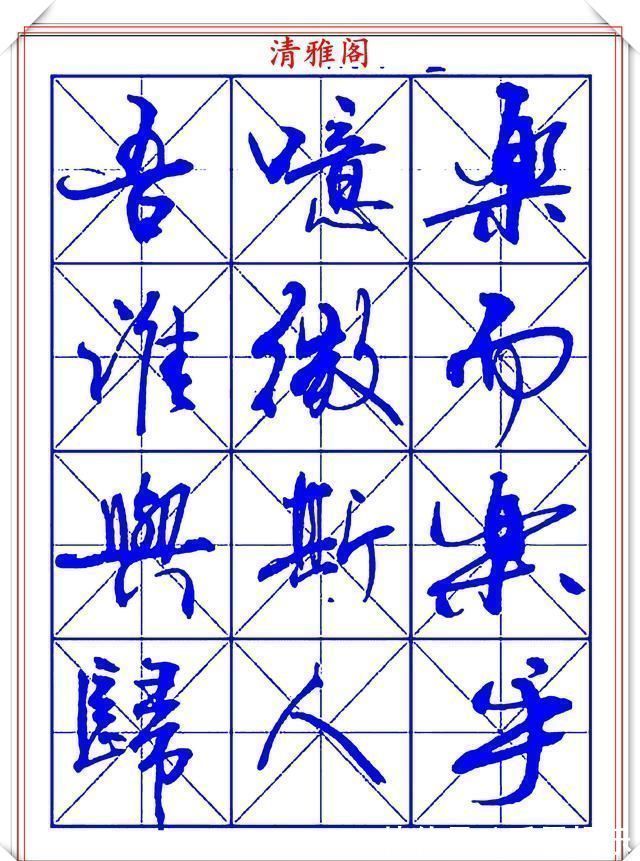 清雅阁
樂而樂乎
噫微斯人
吾誰與歸